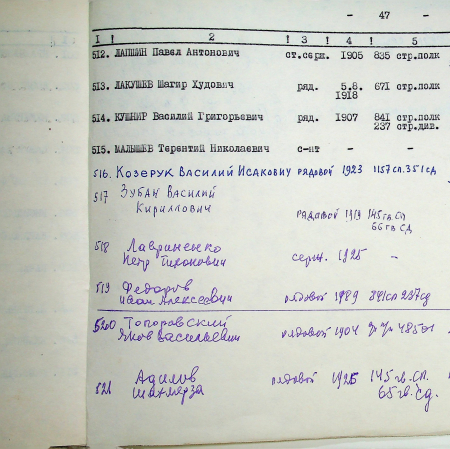 - 47 -
1 ! 2 ! 3 ! 4 ! 5
512. ЛАПШИН Павел Антонович ст.серж. 1905 835 стр.полк
513. ЛАКУШЕВ Шагир Худович ряд. 5.8. 1918 671 стр.полк
514. КУШНИР Василий Григорьевич ряд. 1907 841 стр.полк
237 стр.див.
515. МАЛЫШЕВ Терентий Николаевич с-нт - -
516. Козерук Василий Исакович рядовой 1923 1157 сп. 351 сд
517 Зубан Василий
Кириллович рядовой 1919 145 гв. сп
66 гв сд
518 Лавриненко
Петр Тихонович серж. 1925 -
519 Федоров
Иван Алексеевич рядовой 1989 841 сп 237 сд
520 Топоровский
Яков Васильевич рядовой 1904 п/п
521 Адилов
Шахмерза рядовой 1925 145 гв. сп.
65 гв. сд.